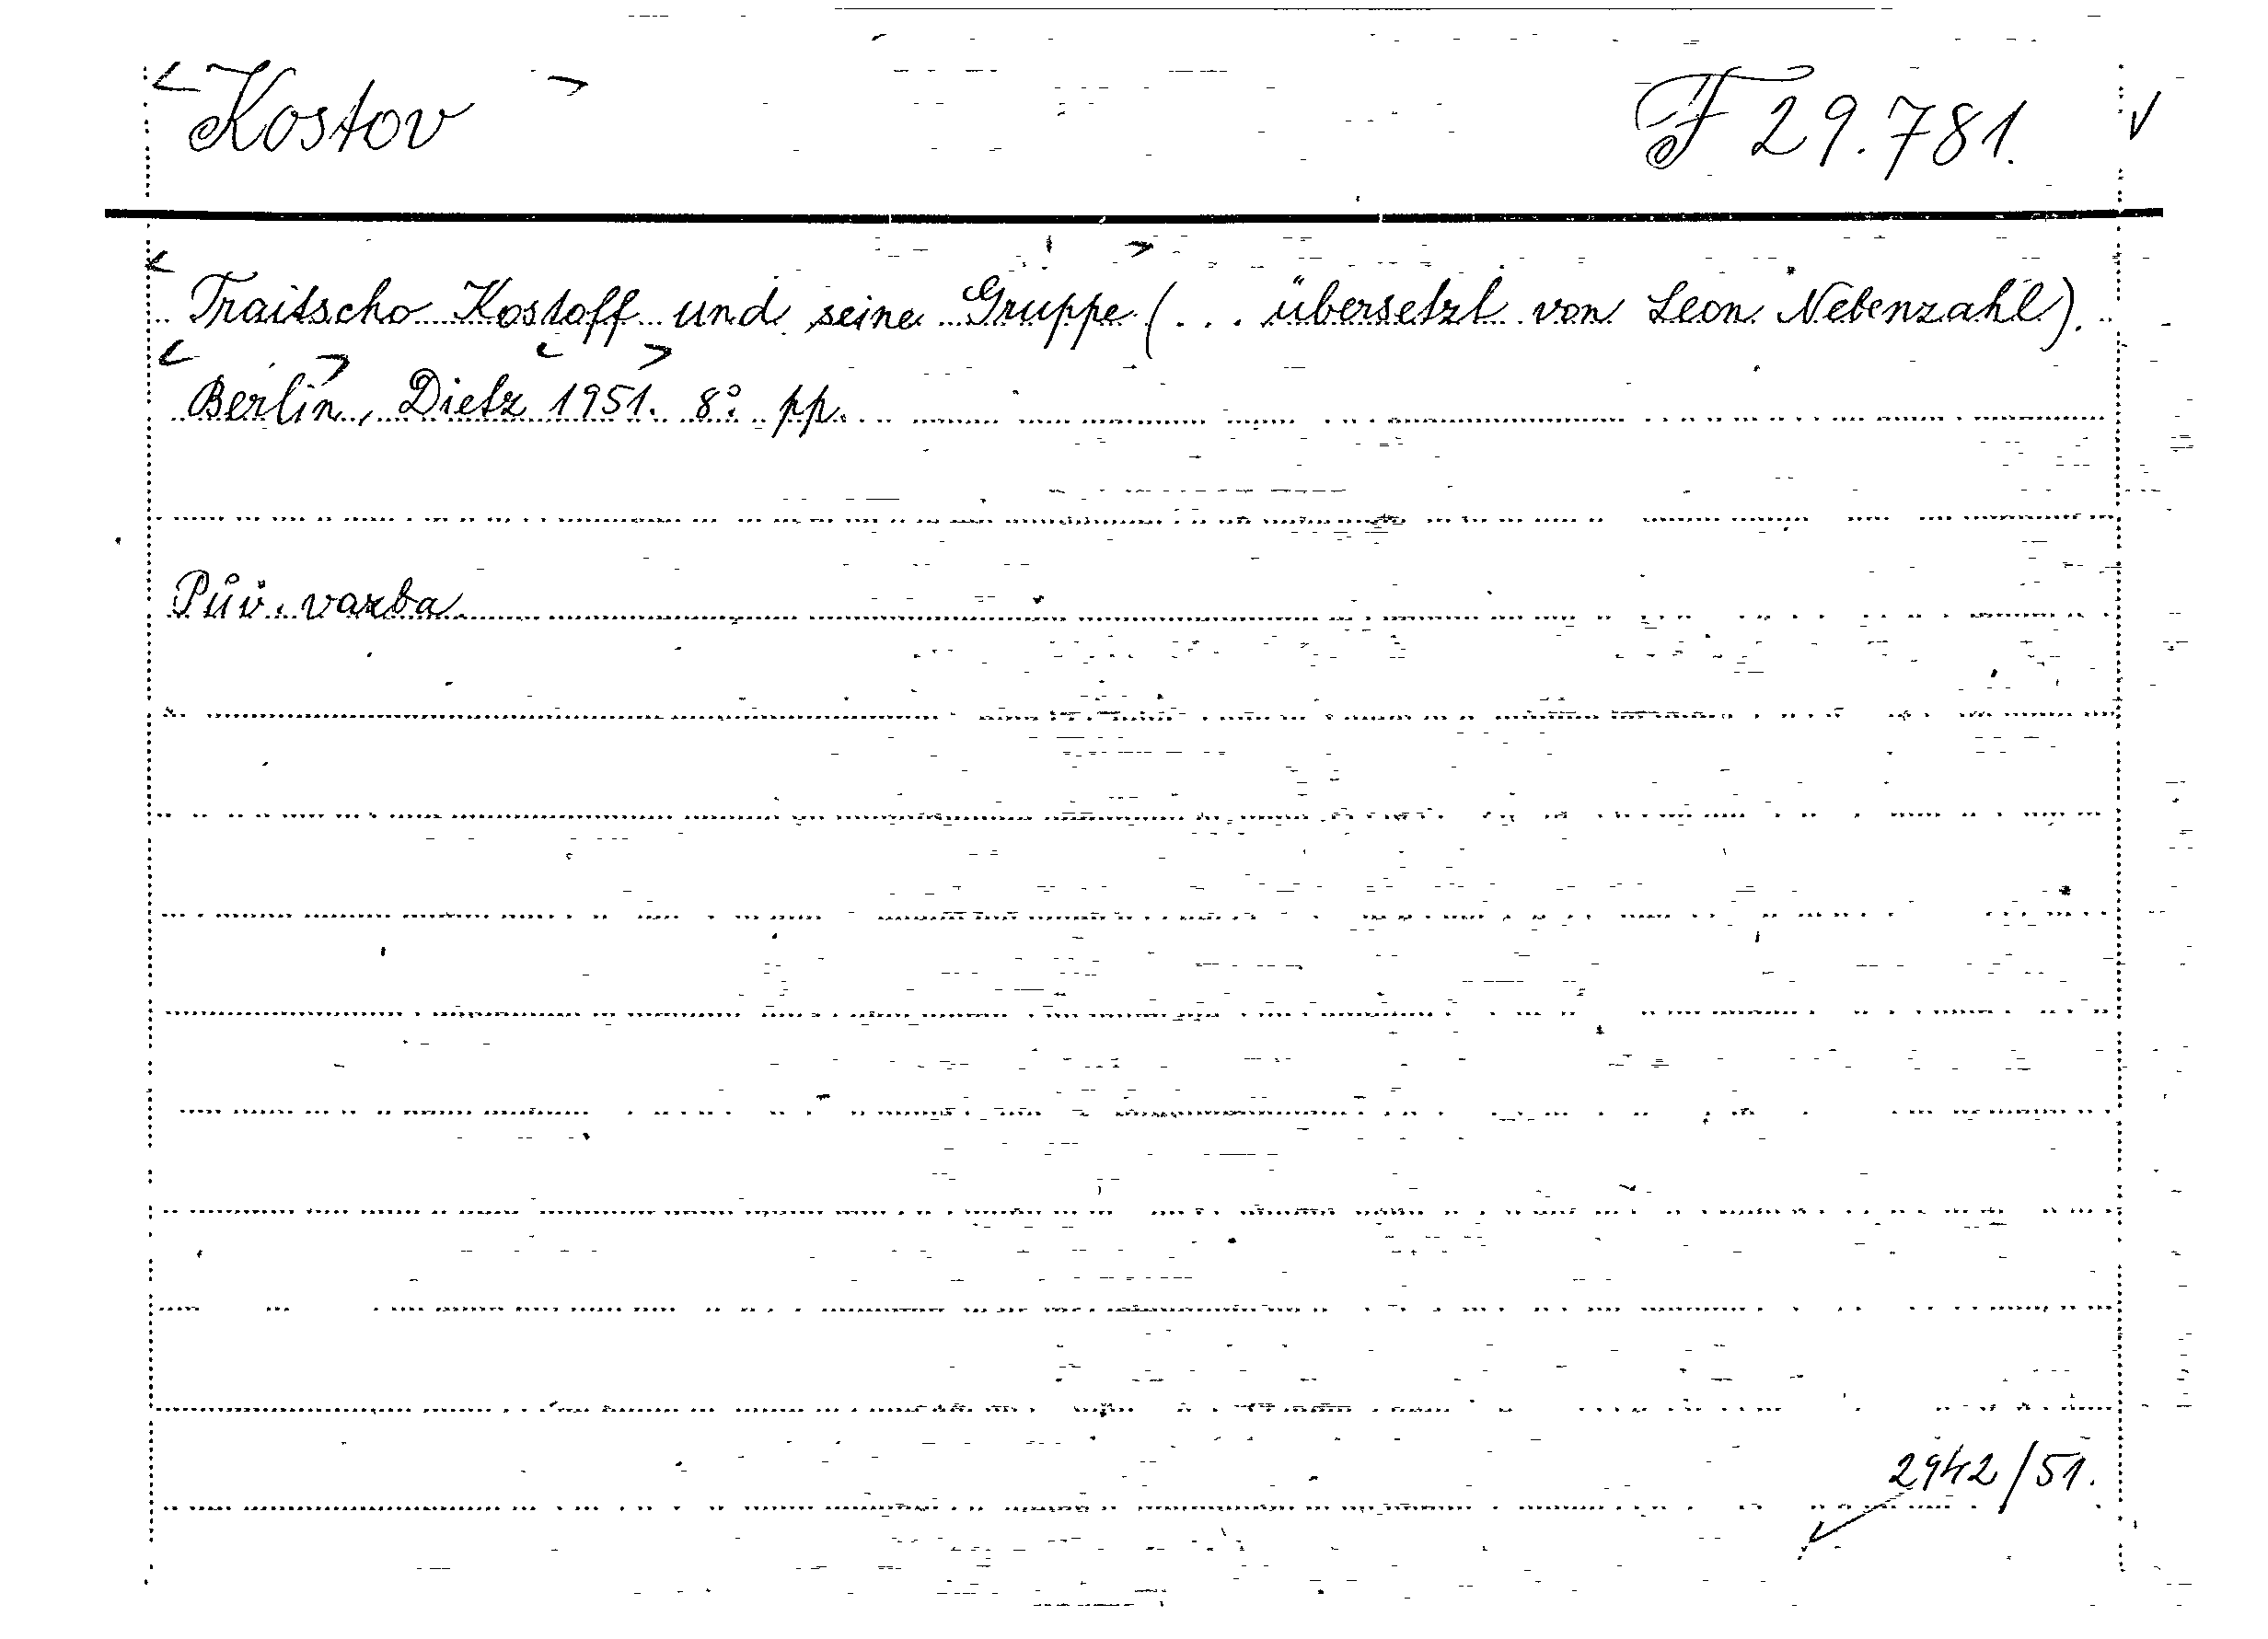 Kostov F 29.781.
Traitscho Kostoff und seine Gruppe (... übersetzt von Leon Nebenzahl).
Berlin, Dietz 1951. 8° pp.
Pův. vazba.
2942/51.